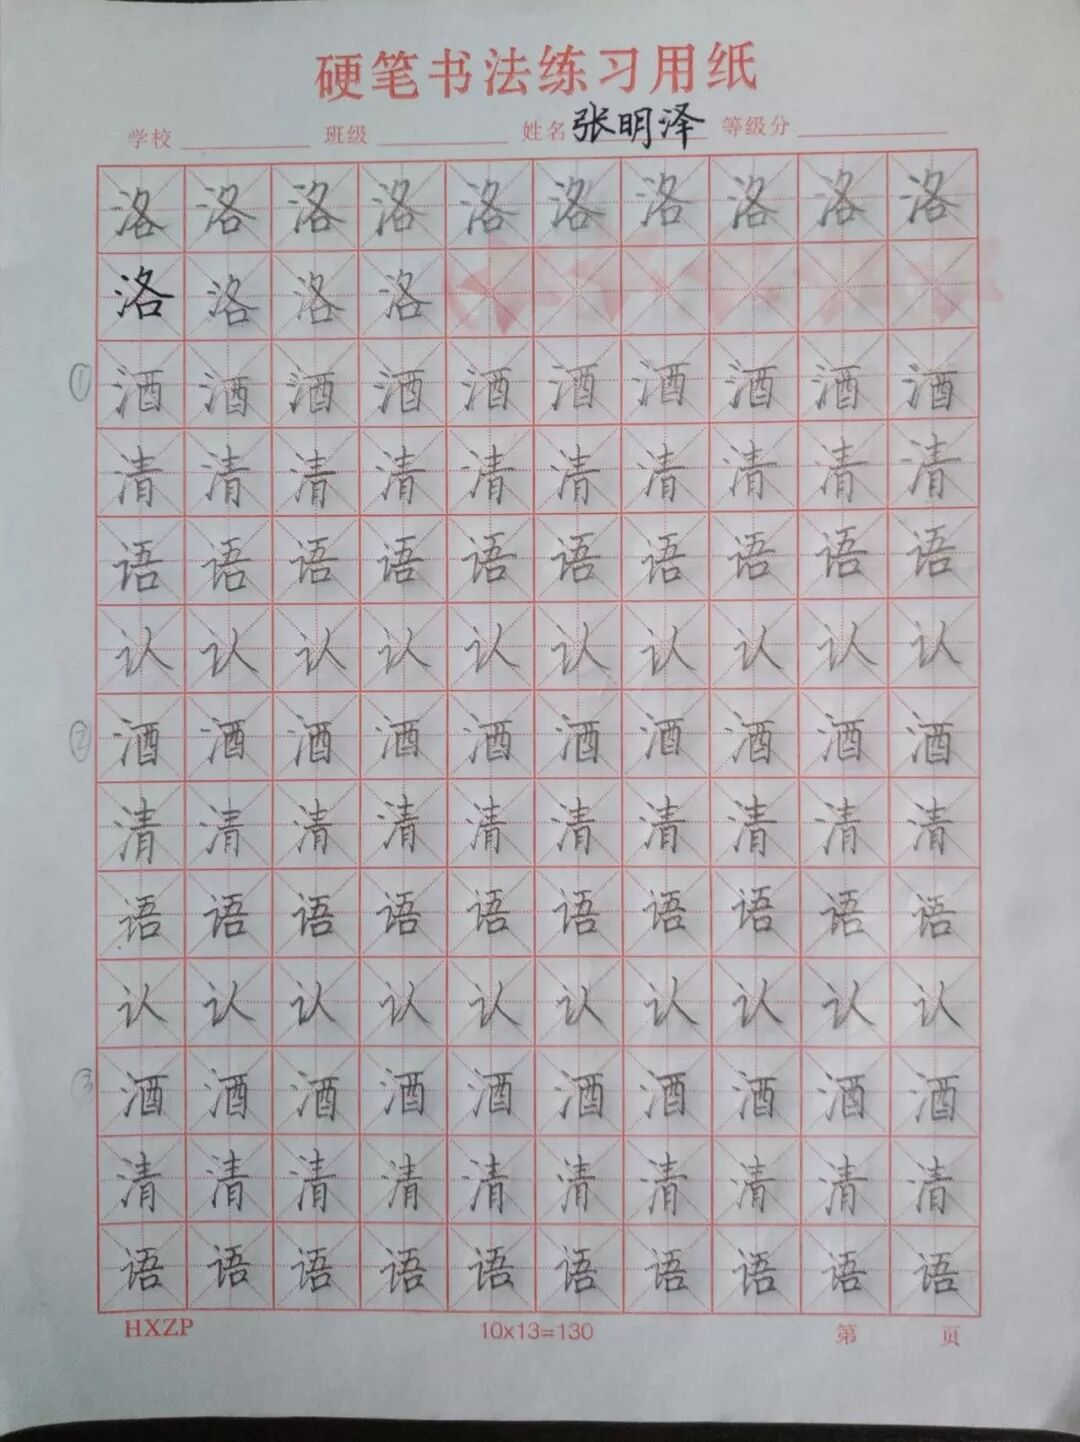 硬笔书法练习用纸
学校 班级 姓名 张明泽 等级分
洛洛洛洛洛洛洛洛洛洛
洛洛洛洛
① 酒酒酒酒酒酒酒酒酒酒
清清清清清清清清清清
语语语语语语语语语语
认认认认认认认认认认
② 酒酒酒酒酒酒酒酒酒酒
清清清清清清清清清清
语语语语语语语语语语
认认认认认认认认认认
③ 酒酒酒酒酒酒酒酒酒酒
清清清清清清清清清清
语语语语语语语语语语
HXZP 10x13=130 第 页